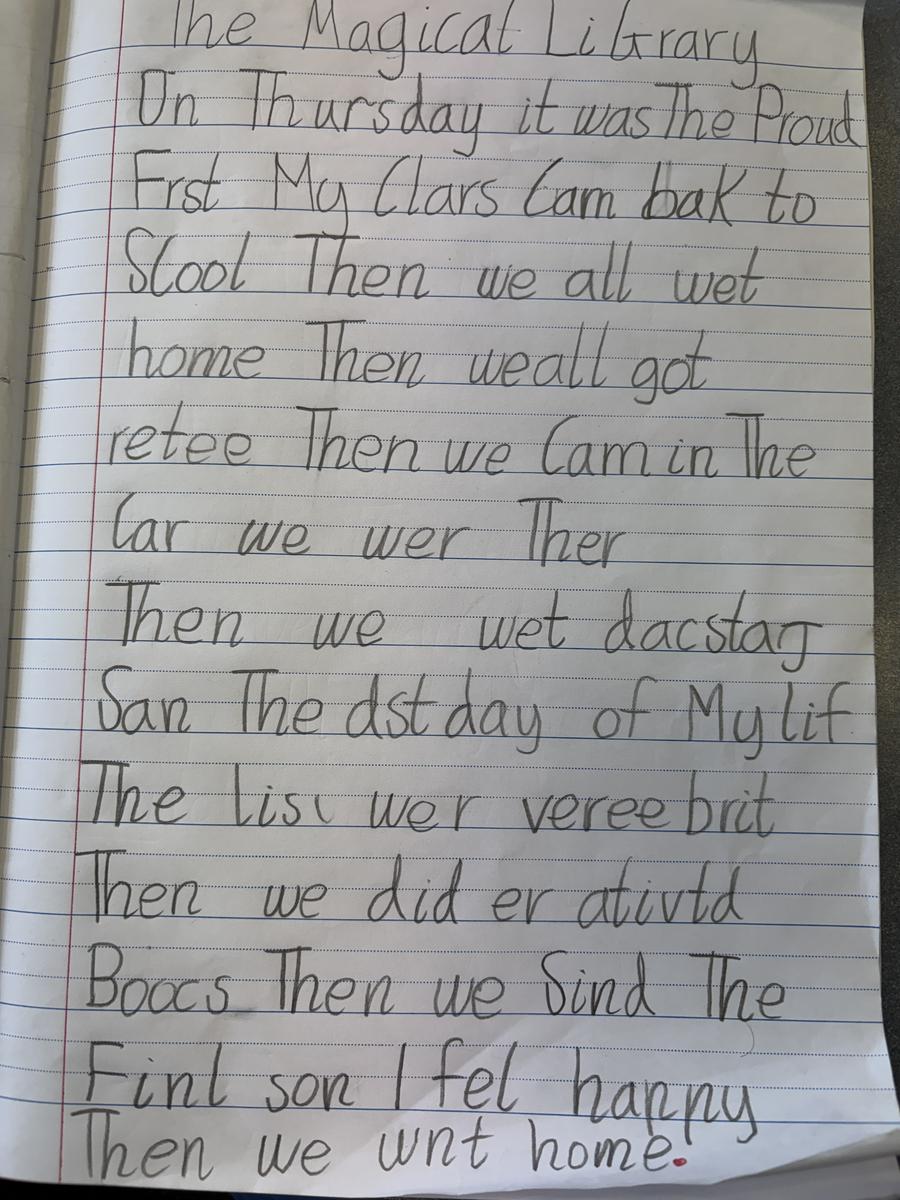 The Magical Library
On Thursday it was The Proud
Frst My Clars Cam bak to
Scool Then we all wet
home Then we all got
retee Then we Cam in The
Car we wer Ther
Then we wet dacstag
San The dst day of My lif
The lisc wer veree brit
Then we did er ativtd
Boocs Then we Sind The
Finl son I fel happy
Then we wnt home.